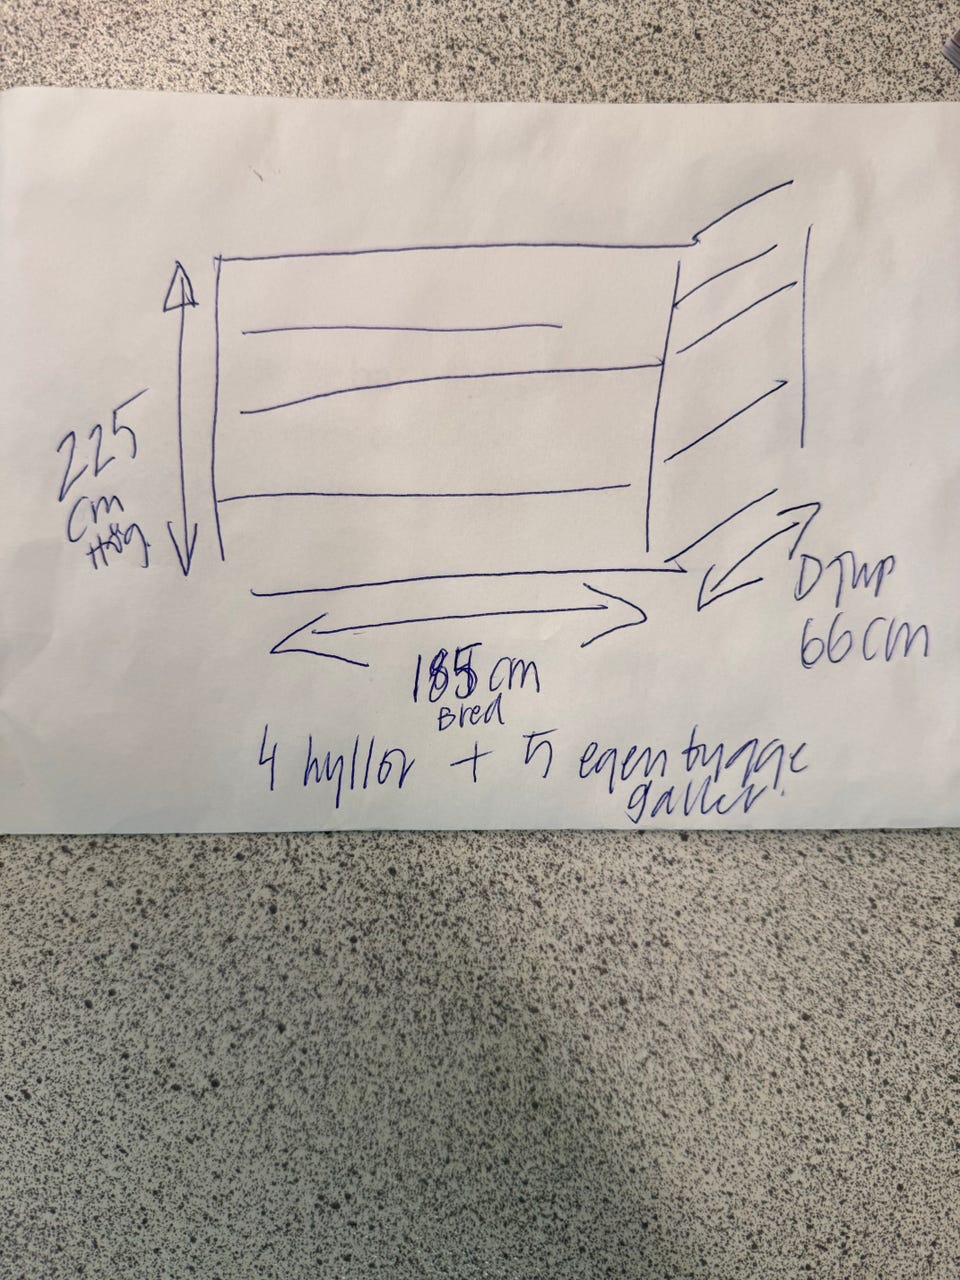 225
cm
Hög
Djup
66 cm
185 cm
Bred
4 hyllor + 5 egenbygge
galler